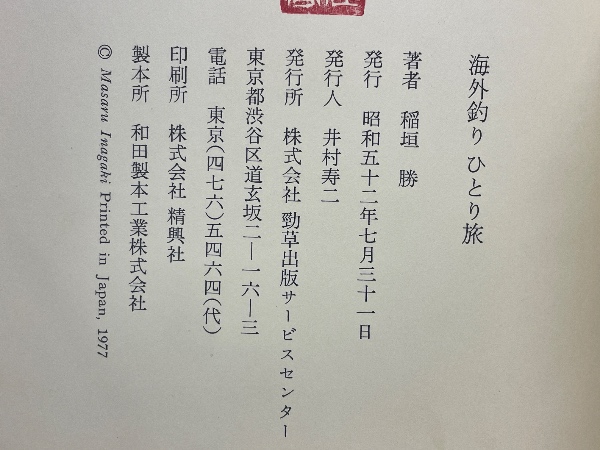 海外釣り ひとり旅
著者 稲垣 勝
発行 昭和五十二年七月三十一日
発行人 井村寿二
発行所 株式会社 勁草出版サービスセンター
東京都渋谷区道玄坂二―一六―三
電話 東京(四七六)五四六四(代)
印刷所 株式会社 精興社
製本所 和田製本工業株式会社
© Masaru Inagaki Printed in Japan, 1977